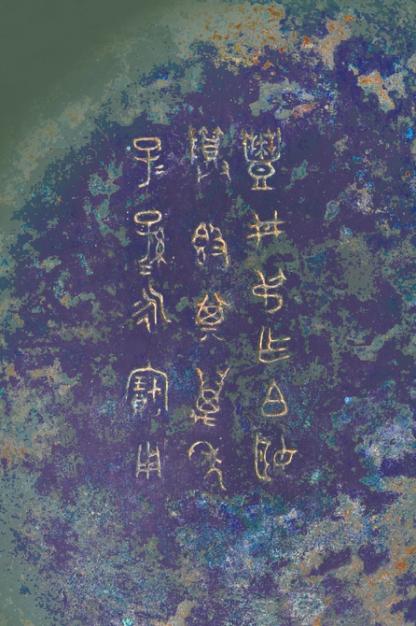 豐井叔乍白姬
尊𣪘其萬年
子=孫=永寶用